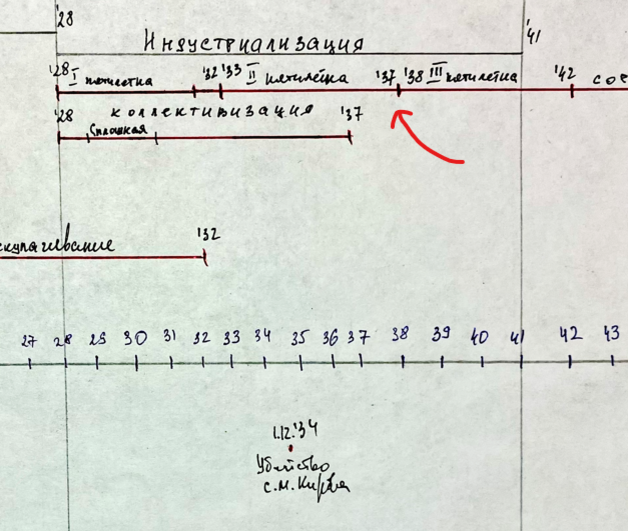 '28
Индустриализация
'41
'28 I пятилетка '32 '33 II пятилетка '37 '38 III пятилетка '42 сое
'28 коллективизация '37
Сплошная
'32
27 28 29 30 31 32 33 34 35 36 37 38 39 40 41 42 43
1.12.'34
Убийство
С.М. Кирова